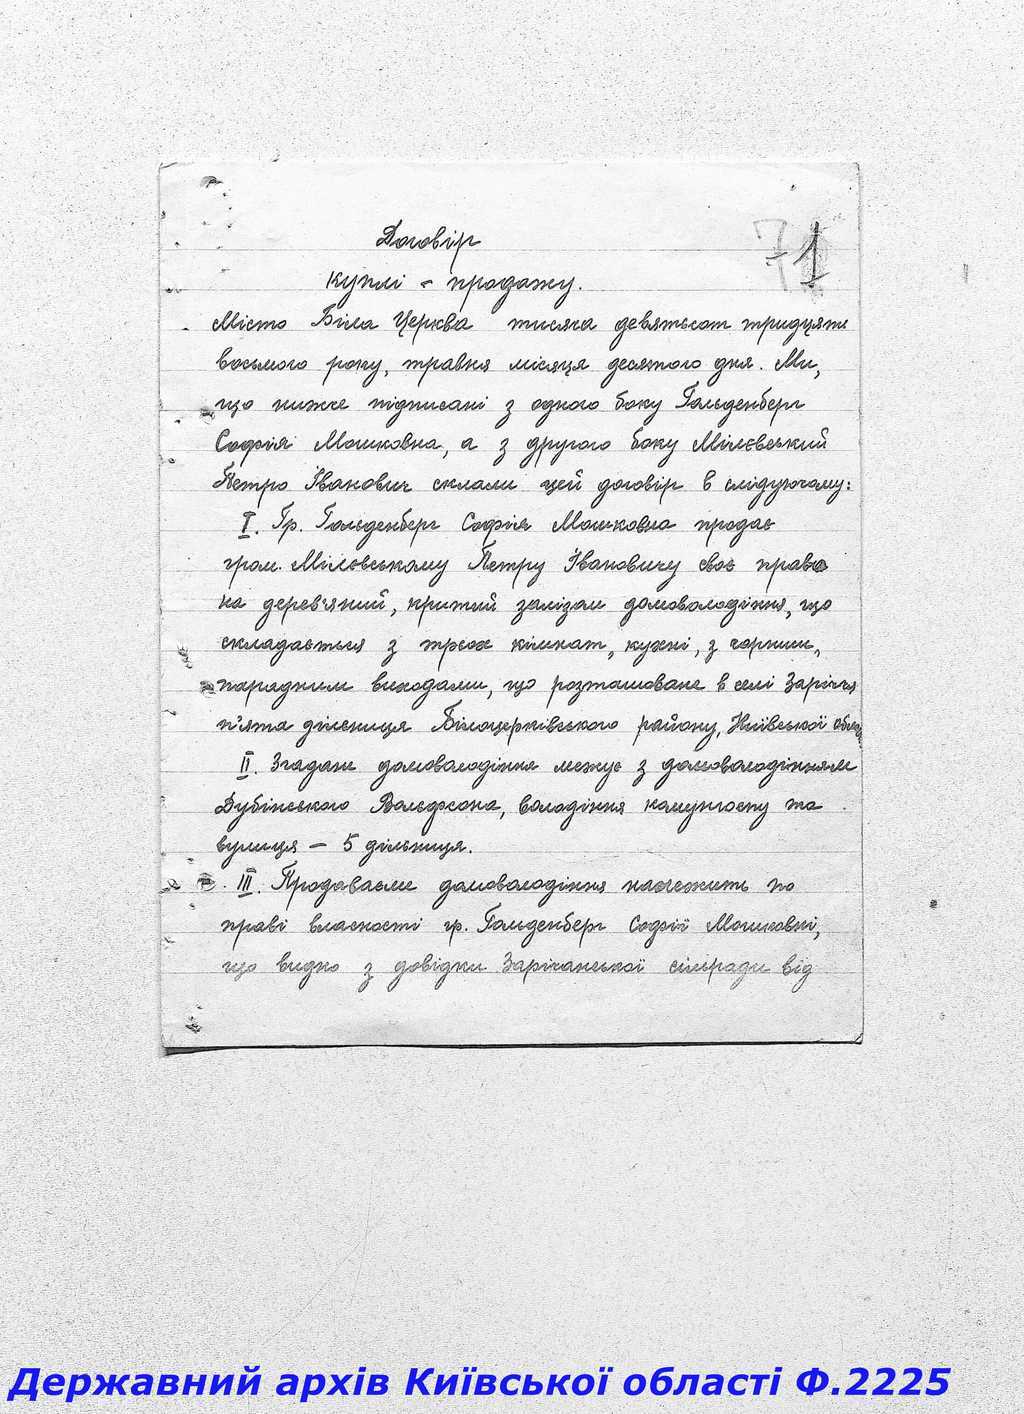 71
Договір
куплі - продажу.
Місто Біла Церква тисяча девятьсот тридцяти
восьмого року, травня місяця десятого дня. Ми,
що нижче підписані з одного боку Гольденберг
Софія Мошковна, а з другого боку Мілєвський
Петро Іванович склали цей договір в слідуючому:
I. Гр. Гольденберг Софія Мошковна продає
гром. Мілєвському Петру Івановичу своє право
на дерев'яний, критий залізом домоволодіння, що
складається з трьох кімнат, кухні, з чорним,
парадним виходами, що розташоване в селі Заріччя
п'ята дільниця Білоцерківського району, Київської облас
II. Згадане домоволодіння межує з домоволодінням
Дубінського Вольфсона, володіння комунгоспу та
вулиця - 5 дільниця.
III. Продаваєме домоволодіння належить по
праві власності гр. Гольденберг Софії Мошковні,
що видно з довідки Зарічанської сільради від
Державний архів Київської області Ф.2225